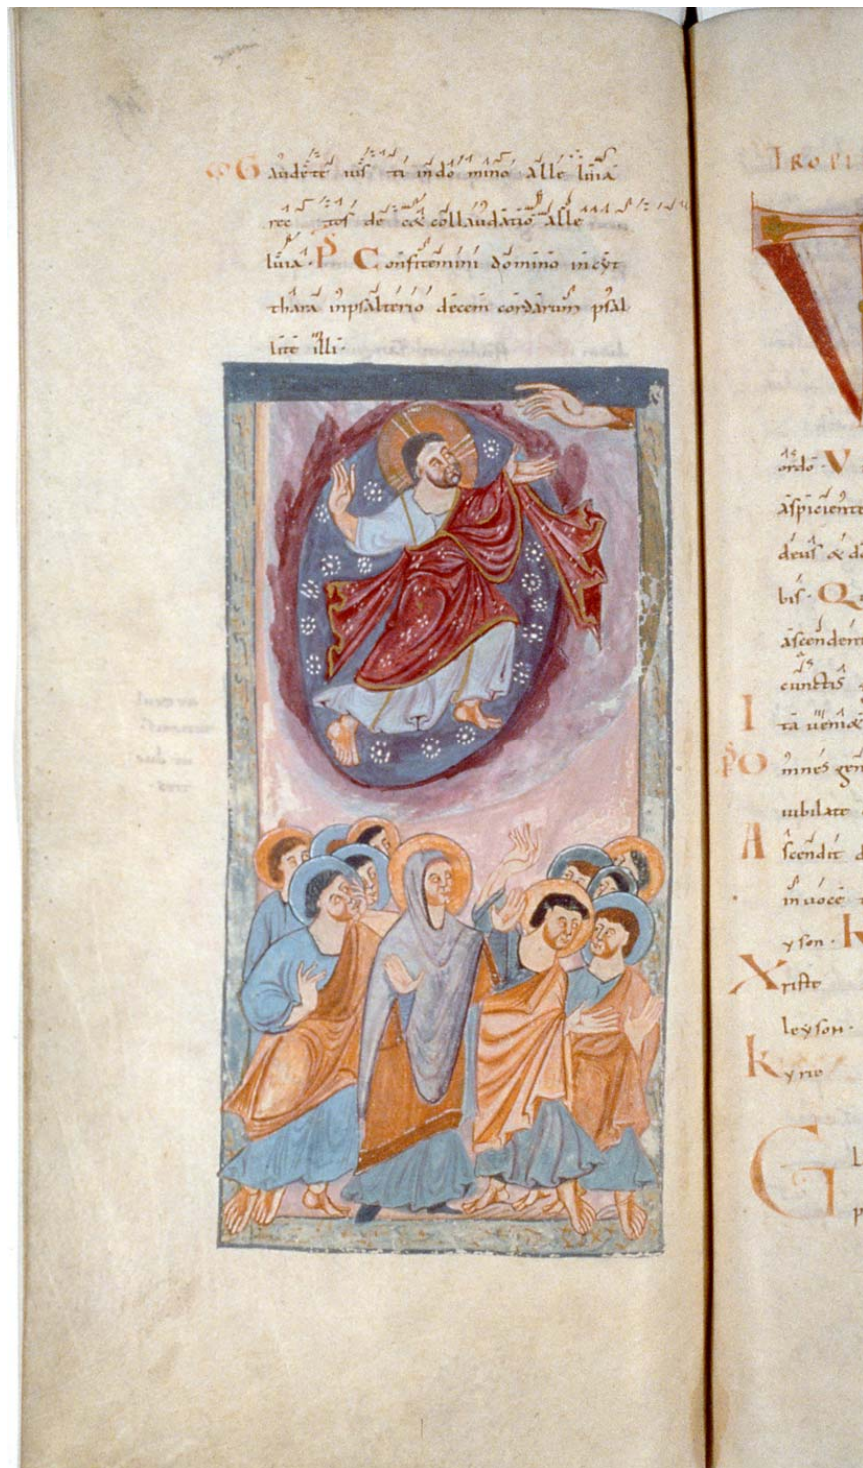 Gaudete ius ti in do mino alle luia
rec tos de & collaudatio alle
luia. Ps Confitemini domino in cyt
thara in psalterio decem cordarum psal
lite illi.
TROPI
ordo. V
aspiciente
deus & do
bis. Q
ascendent
cunctis
Ita ueni&
Ps Omnes gen
iubilate
Ascendit d
in uoce
yson. K
Xriste
leyson.
Kyrie
Gl
p